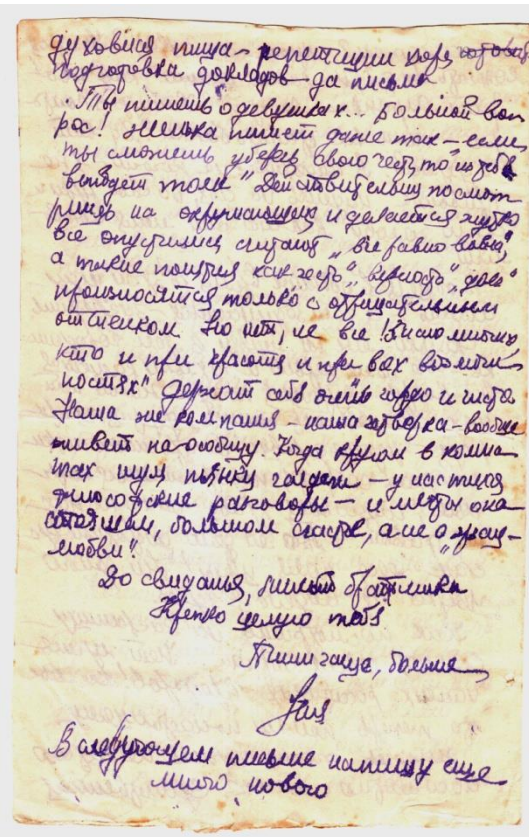 духовная пища – репетиции хора
подготовка докладов да письма
Ты пишешь о девушках... Большой воп
рос! Женька пишет даже так – если
ты сможешь уберечь свою честь, то „из тебя
выйдет толк" Действительно посмот
ришь на окружающих и делается жутко
все опустились считают „все равно война",
а такие понятия как честь, верность, „долг"
произносятся только с отрицательным
оттенком. Но нет, не все!
кто и при красоте и при всех возмож
ностях" держит себя очень гордо и чисто
Наша же компания – наша – вообще
живет по-особому. Когда кругом в комна
тах шум пьянки галдеж – у нас тихие
философские разговоры – и мечты о на
стоящем, большом счастье, а не о
любви".
До свиданья, милый братишка
Крепко целую тебя
Пиши чаще, больше
Зая
В следующем письме напишу еще
много нового